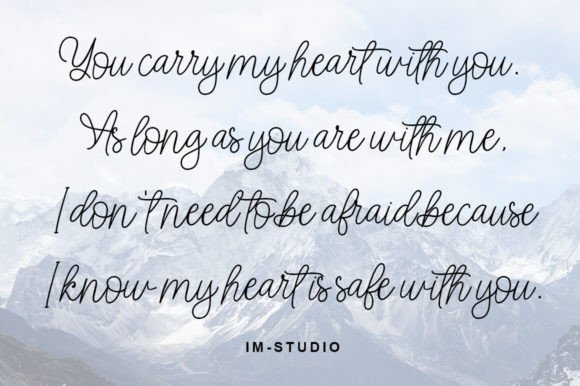 You carry my heart with you.
As long as you are with me,
I don't need to be afraid because
I know my heart is safe with you.
IM-STUDIO